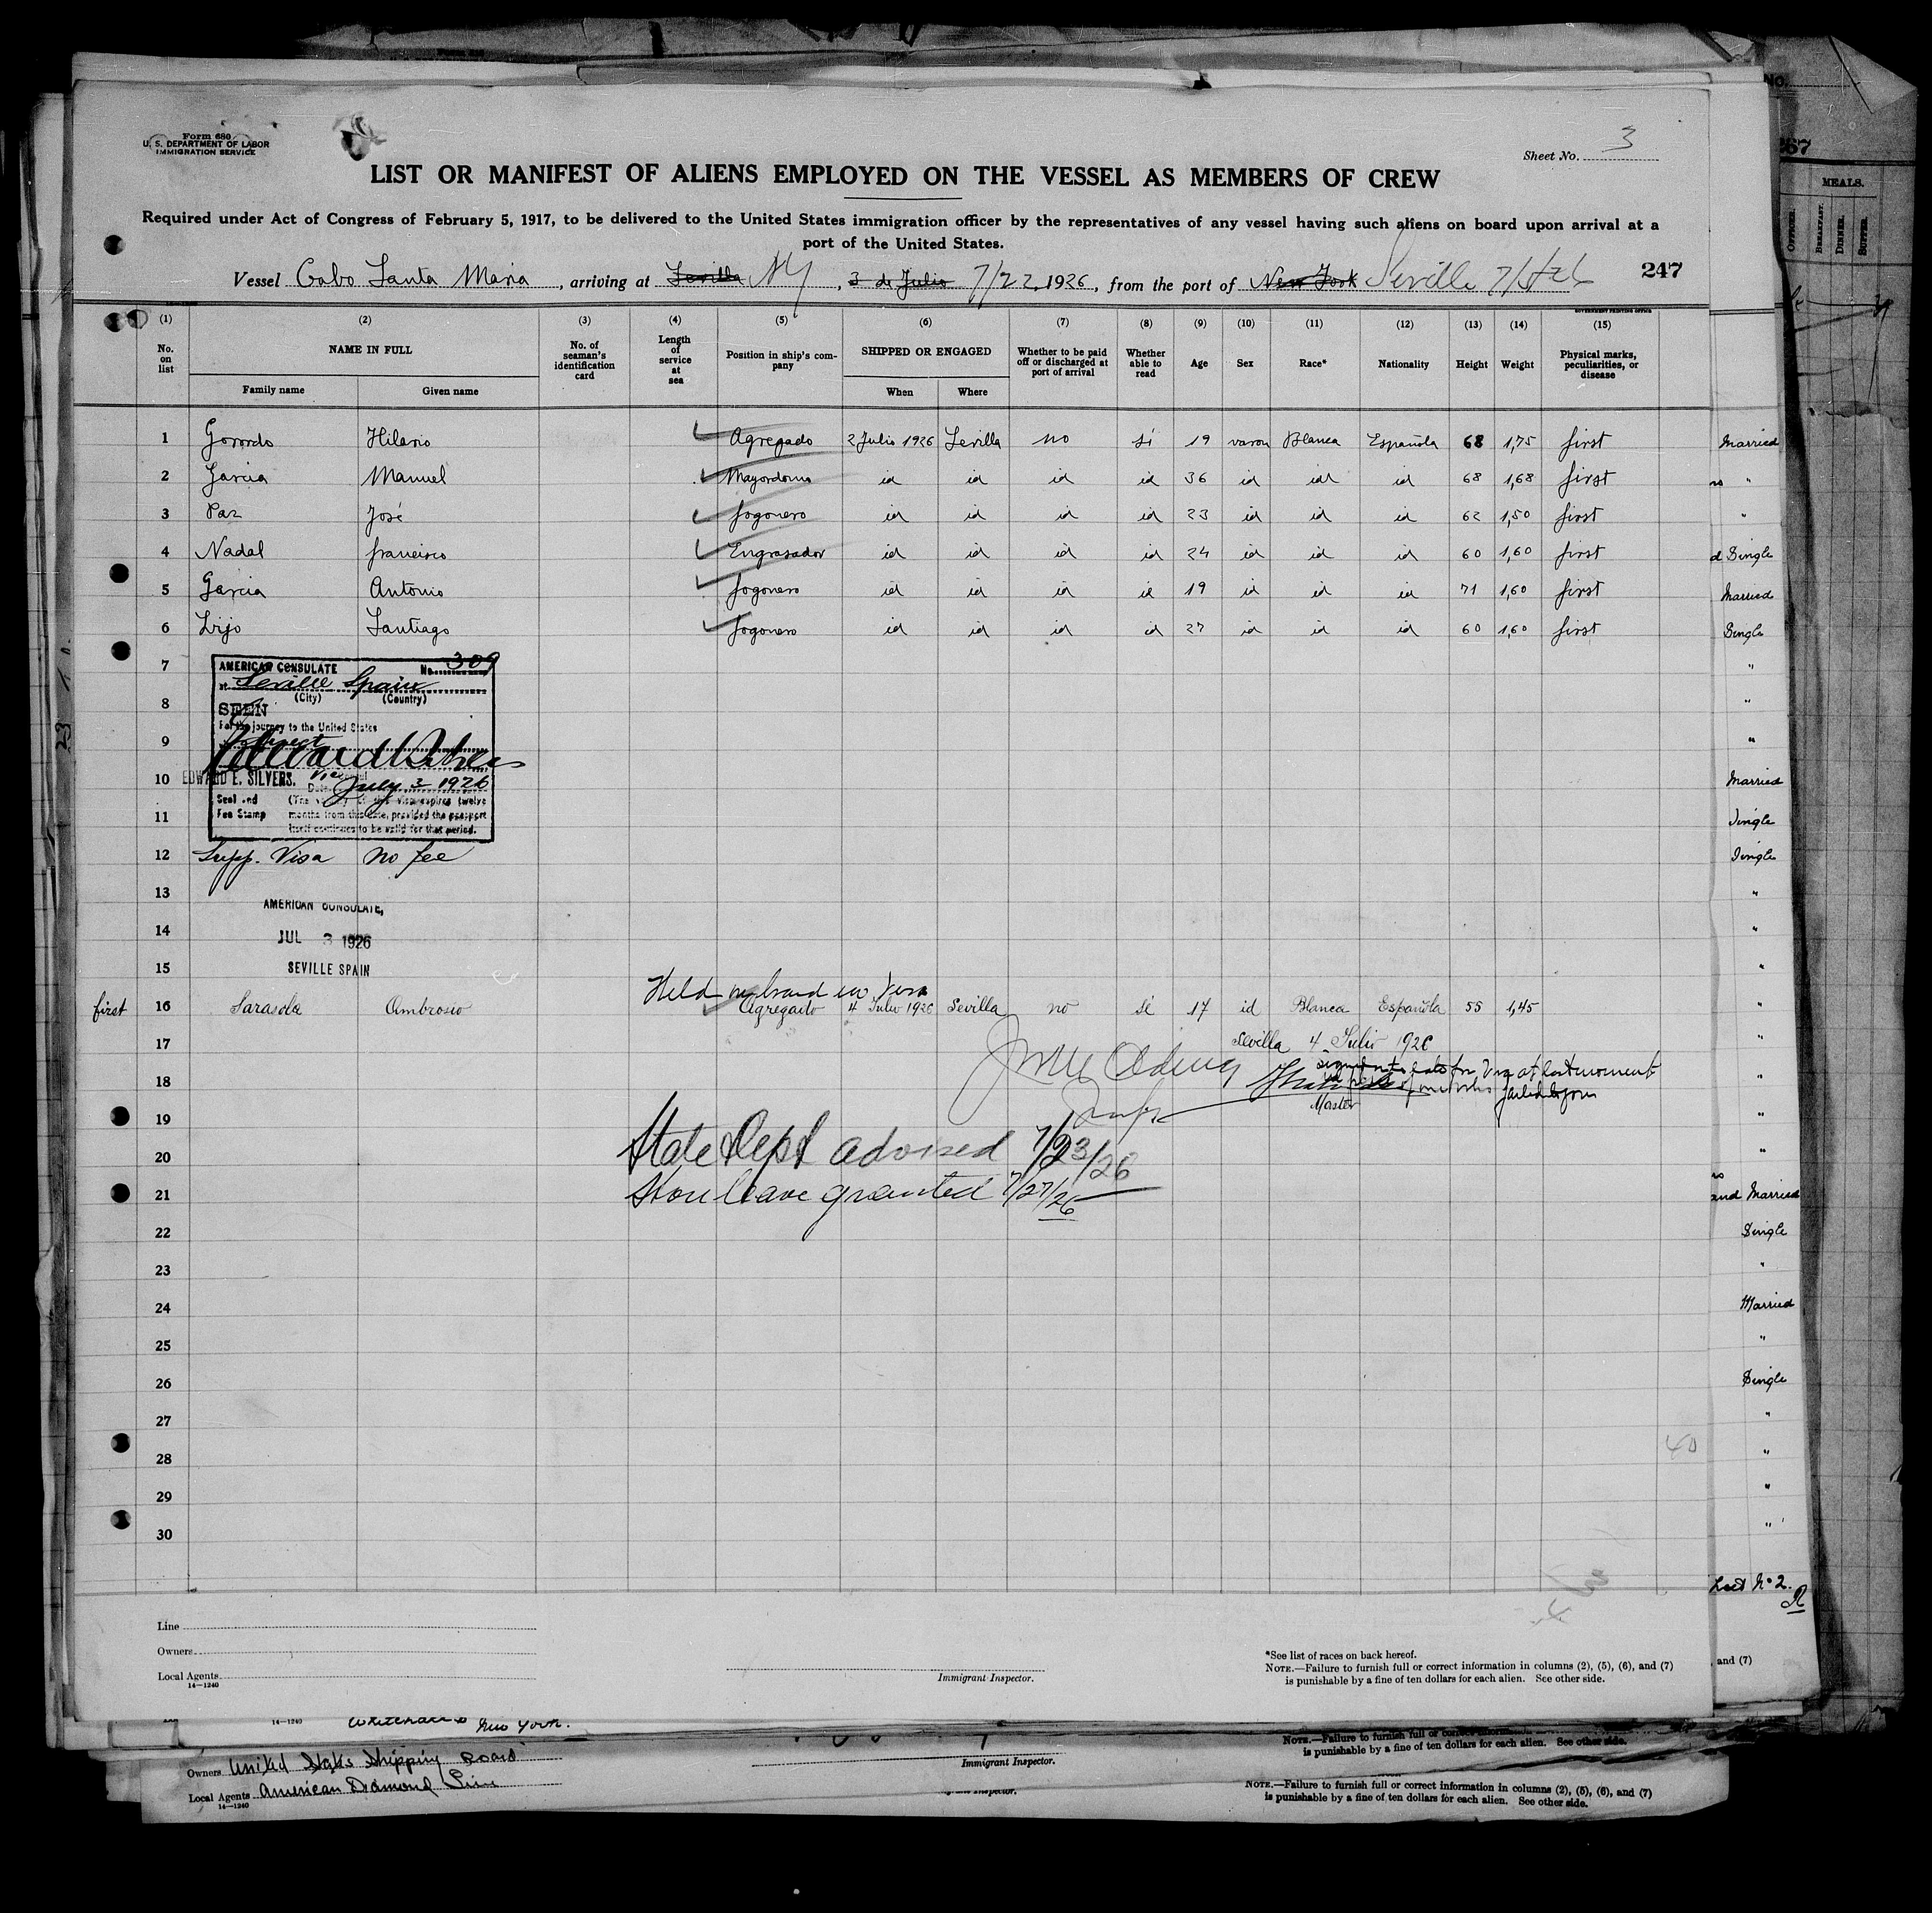 Form 680
U. S. DEPARTMENT OF LABOR
IMMIGRATION SERVICE
Sheet No. 3
LIST OR MANIFEST OF ALIENS EMPLOYED ON THE VESSEL AS MEMBERS OF CREW
Required under Act of Congress of February 5, 1917, to be delivered to the United States immigration officer by the representatives of any vessel having such aliens on board upon arrival at a
port of the United States.
Vessel Cabo Santa Maria, arriving at Sevilla NY, 3 de Julio 7/22, 1926, from the port of New York Seville
247
GOVERNMENT PRINTING OFFICE
(1) (2) (3) (4) (5) (6) (7) (8) (9) (10) (11) (12) (13) (14) (15)
No. on list
NAME IN FULL
Family name
Given name
No. of seaman's identification card
Length of service at sea
Position in ship's company
SHIPPED OR ENGAGED
When
Where
Whether to be paid off or discharged at port of arrival
Whether able to read
Age
Sex
Race*
Nationality
Height
Weight
Physical marks, peculiarities, or disease
1 Gorordo Hilario Agregado 2 Julio 1926 Sevilla no si 19 varon Blanca Española 68 1,75 first
2 Garcia Manuel Mayordomo id id id id 36 id id id 68 1,68 first
3 Paz José fogonero id id id id 23 id id id 62 1,50 first
4 Nadal francisco Engrasador id id id id 24 id id id 60 1,60 first
5 Garcia Antonio fogonero id id id id 19 id id id 71 1,60 first
6 Lijo Santiago fogonero id id id id 27 id id id 60 1,60 first
7
8
9
10
11
12
13
14
15
AMERICAN CONSULATE No. 309
at Seville Spain
(City) (Country)
SEEN
For the journey to the United States
EDWARD E. SILVERS. Vice
Date July 3 1926
Seal and Fee Stamp
(The validity of this visa expires twelve
months from this date, provided the passport
itself continues to be valid for that period.
Supp. Visa no fee
AMERICAN CONSULATE,
JUL 3 1926
SEVILLE SPAIN
Held on board no Visa
first 16 Sarasola Ambrosio Agregado 4 Julio 1926 Sevilla no si 17 id Blanca Española 55 1,45
17 Sevilla 4 Julio 1926
18
for Visa at last moment
Master
19
20 State Dept advised 7/23/26
21 Shore leave granted 7/27/26
22
23
24
25
26
27
28
29
30
40
Line
Owners
Local Agents
14—1240
Immigrant Inspector.
*See list of races on back hereof.
NOTE.—Failure to furnish full or correct information in columns (2), (5), (6), and (7)
is punishable by a fine of ten dollars for each alien. See other side.
Married
"
"
Single
Married
Single
"
"
"
Married
Single
Single
"
"
"
"
"
"
"
"
and Married
Single
"
Married
"
Single
"
"
"
"
No 2.
and (7)
NO.
267
MEALS.
OFFICER.
BREAKFAST.
DINNER.
SUPPER.
14—1240
New York.
Owners United States Shipping Board
Local Agents American Diamond Line
14—1240
Immigrant Inspector.
NOTE.—Failure to furnish full or correct
is punishable by a fine of ten dollars for each alien. See other side.
NOTE.—Failure to furnish full or correct information in columns (2), (5), (6), and (7)
is punishable by a fine of ten dollars for each alien. See other side.